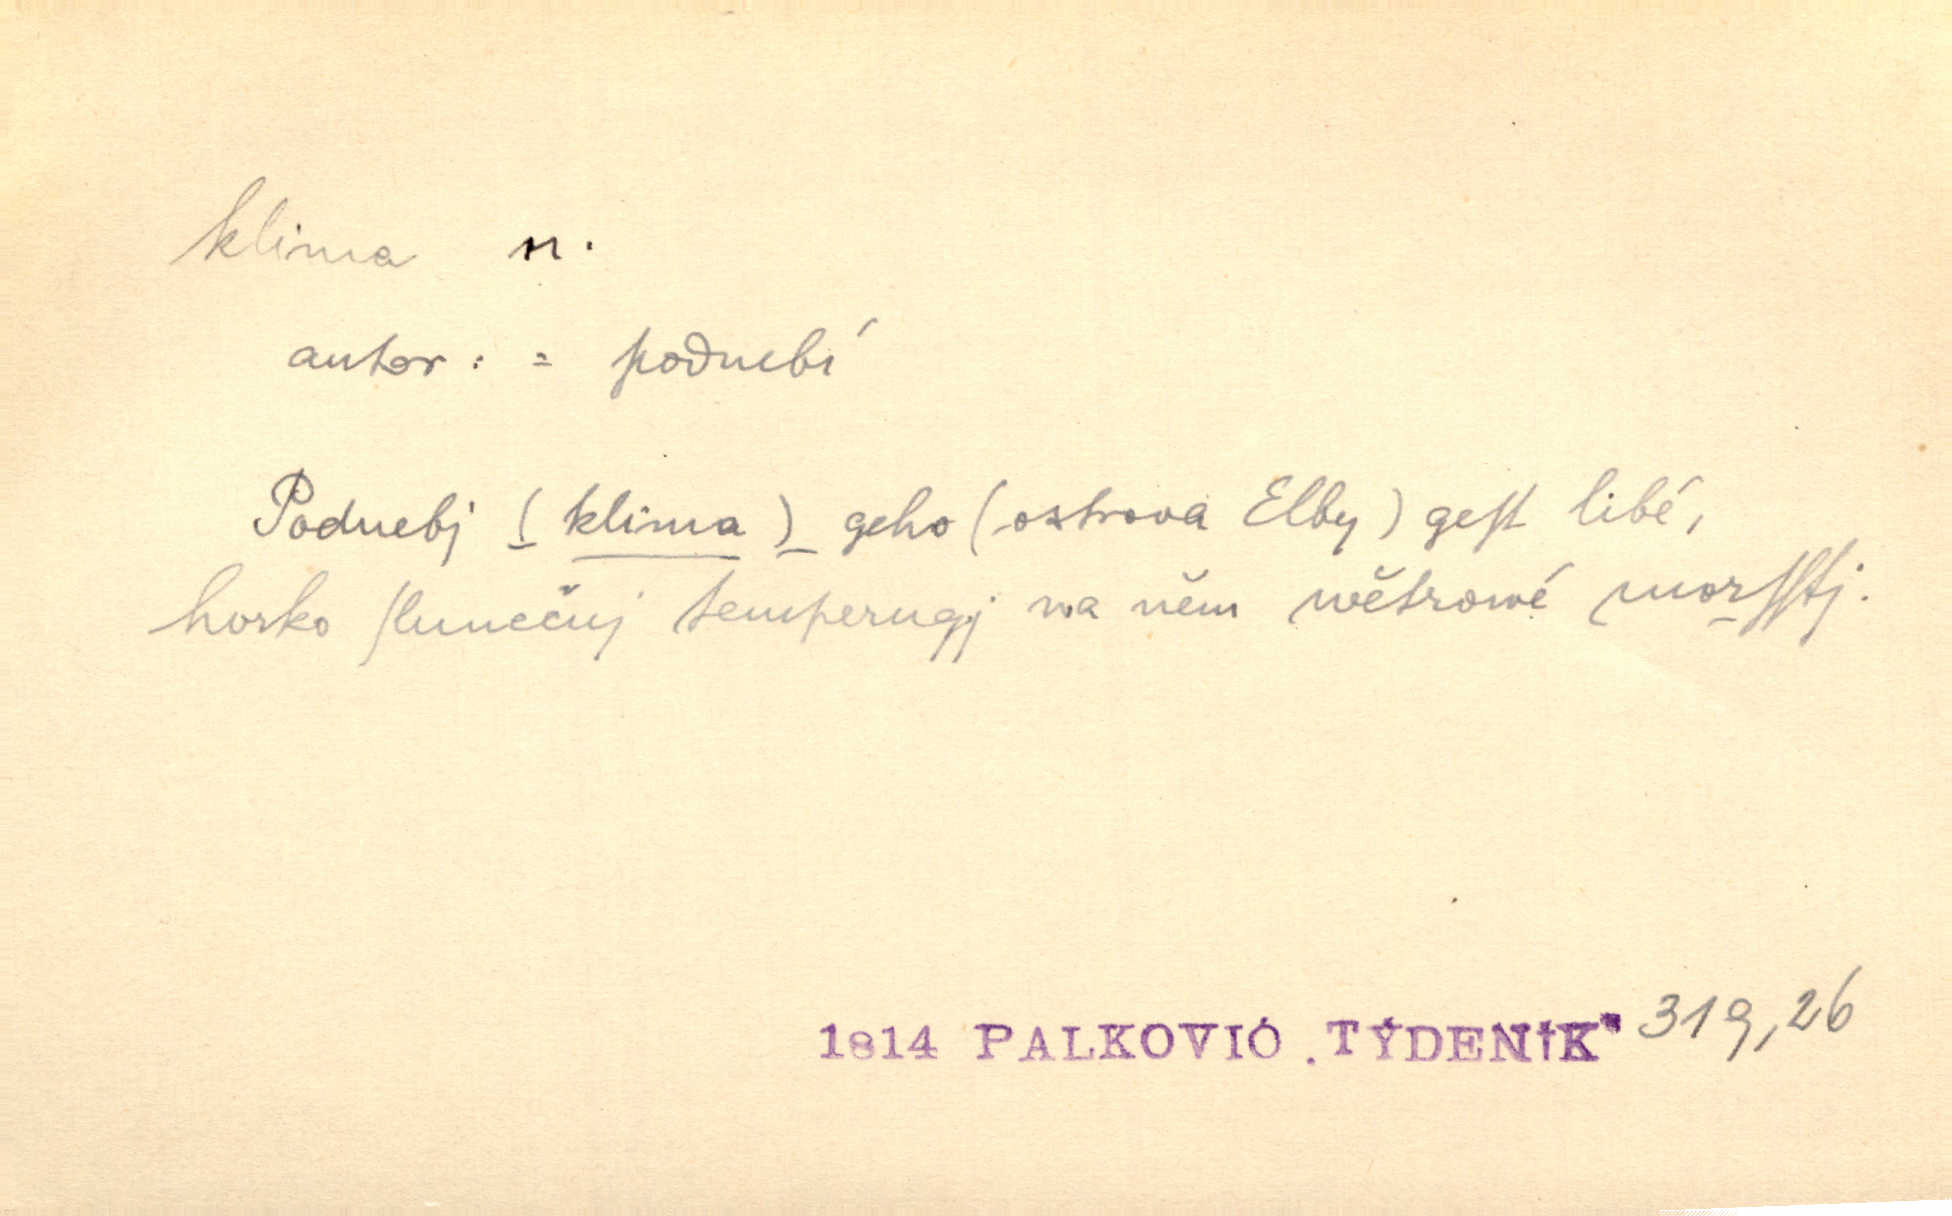 klima n.
autor: = podnebí
Podnebj (klima) geho (ostrova Elby) gest libé,
horko slunečnj temperugj na něm wětrowé morsstj.
1814 PALKOVIČ „TÝDENÍK“ 319,26